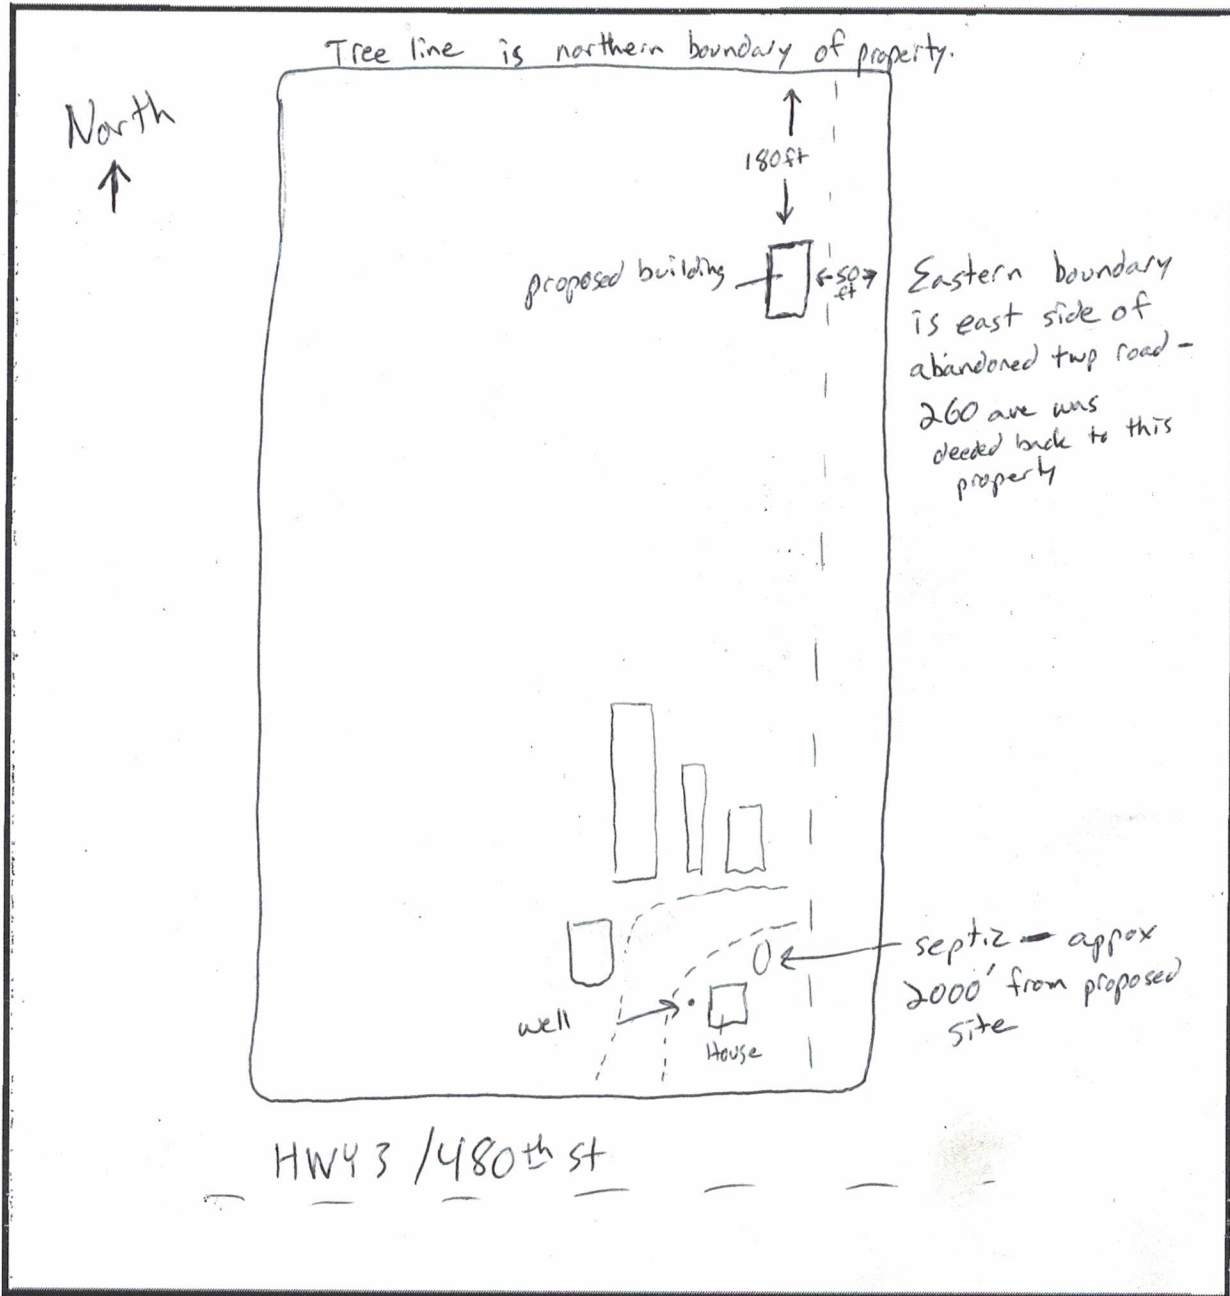 Tree line is northern boundary of property.
North
180ft
proposed building
50
ft
Eastern boundary
is east side of
abandoned twp road -
260 ave was
deeded back to this
property
septiz - appox
2000' from proposed
site
well
House
HWY 3 /480th st